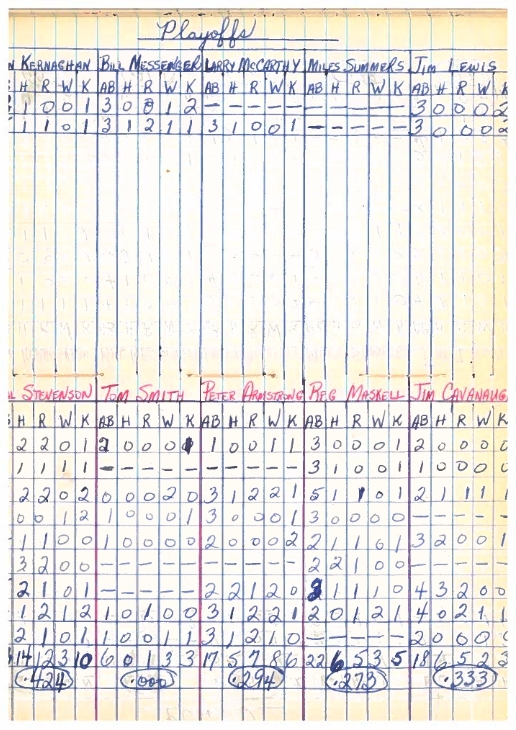 Playoffs
KERNAGHAN BILL MESSENGER LARRY McCARTHY MILES SUMMERS JIM LEWIS
H R W K AB H R W K AB H R W K AB H R W K AB H R W K
1 0 0 1 3 0 0 1 2 – – – – – – – – – – 3 0 0 0 2
1 1 0 1 3 1 2 1 1 3 1 0 0 1 – – – – – 3 0 0 0 2
STEVENSON TOM SMITH PETER ARMSTRONG REG MASKELL JIM CAVANAUG
H R W K AB H R W K AB H R W K AB H R W K AB H R W K
2 2 0 1 2 0 0 0 1 1 0 0 1 1 3 0 0 0 1 2 0 0 0 0
1 1 1 1 – – – – – – – – – – 3 1 0 0 1 1 0 0 0 0
2 2 0 2 0 0 0 2 0 3 1 2 2 1 5 1 1 0 1 2 1 1 1 1
0 0 1 2 1 0 0 0 1 3 0 0 0 1 3 0 0 0 0 – – – – –
1 1 0 0 1 0 0 0 0 2 0 0 0 2 2 1 1 1 0 1 3 2 0 0 1
3 2 0 0 – – – – – 2 2 1 0 0 – – – – –
2 1 0 1 – – – – – 2 2 1 2 0 3 1 1 1 0 4 3 2 0 0
1 2 1 2 1 0 1 0 0 3 1 2 2 1 2 0 1 2 1 4 0 2 1 1
2 1 0 1 1 0 0 1 1 3 1 2 1 0 – – – – – 2 0 0 0 0
14 12 3 10 6 0 1 3 3 17 5 7 8 6 22 6 5 3 5 18 6 5 2 3
.424 .000 .294 .273 .333